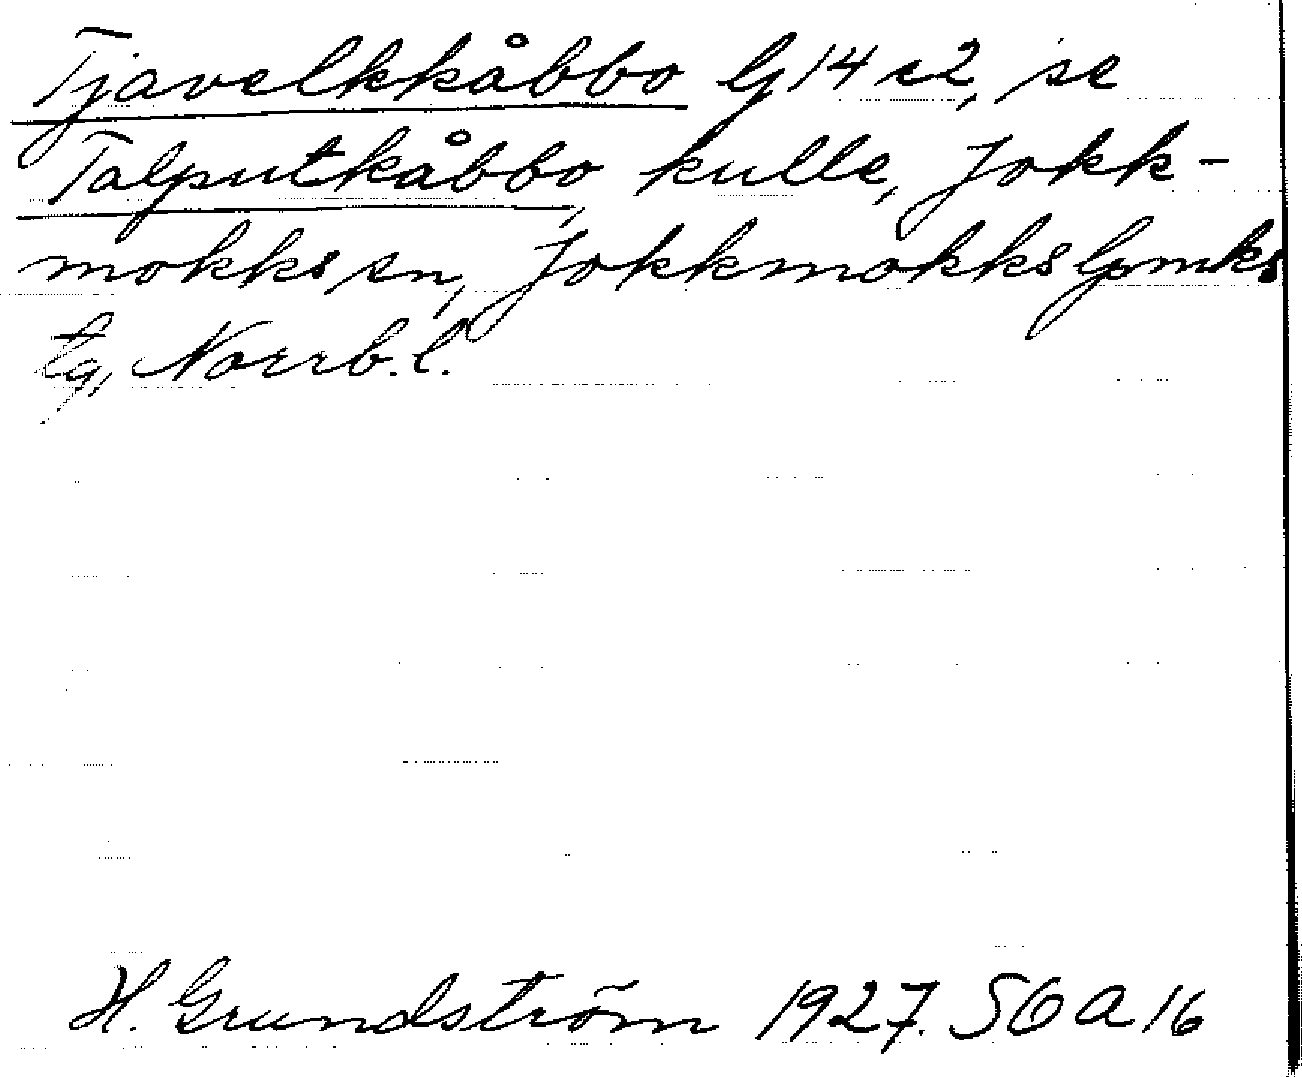 Tjavelkkåbbo G14 c2, se
Talputkåbbo, kulle, Jokk-
mokks sn, Jokkmokks lpmks
tg, Norrb. l.
H. Grundström 1927. SOA 16